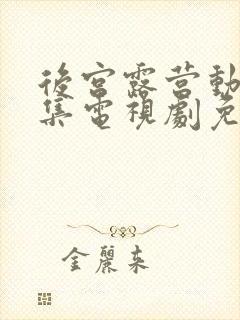 後宮露营動
集電視劇免
金麗来